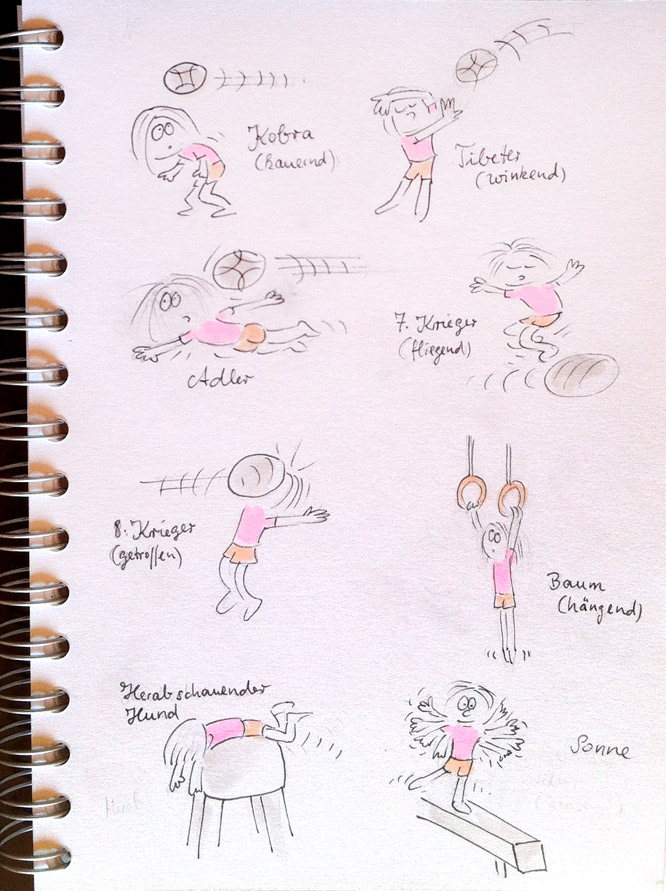 Kobra
(kauernd)
Tibeter
(winkend)
Adler
7. Krieger
(fliegend)
8. Krieger
(getroffen)
Baum
(hängend)
Herabschauender
Hund
Sonne